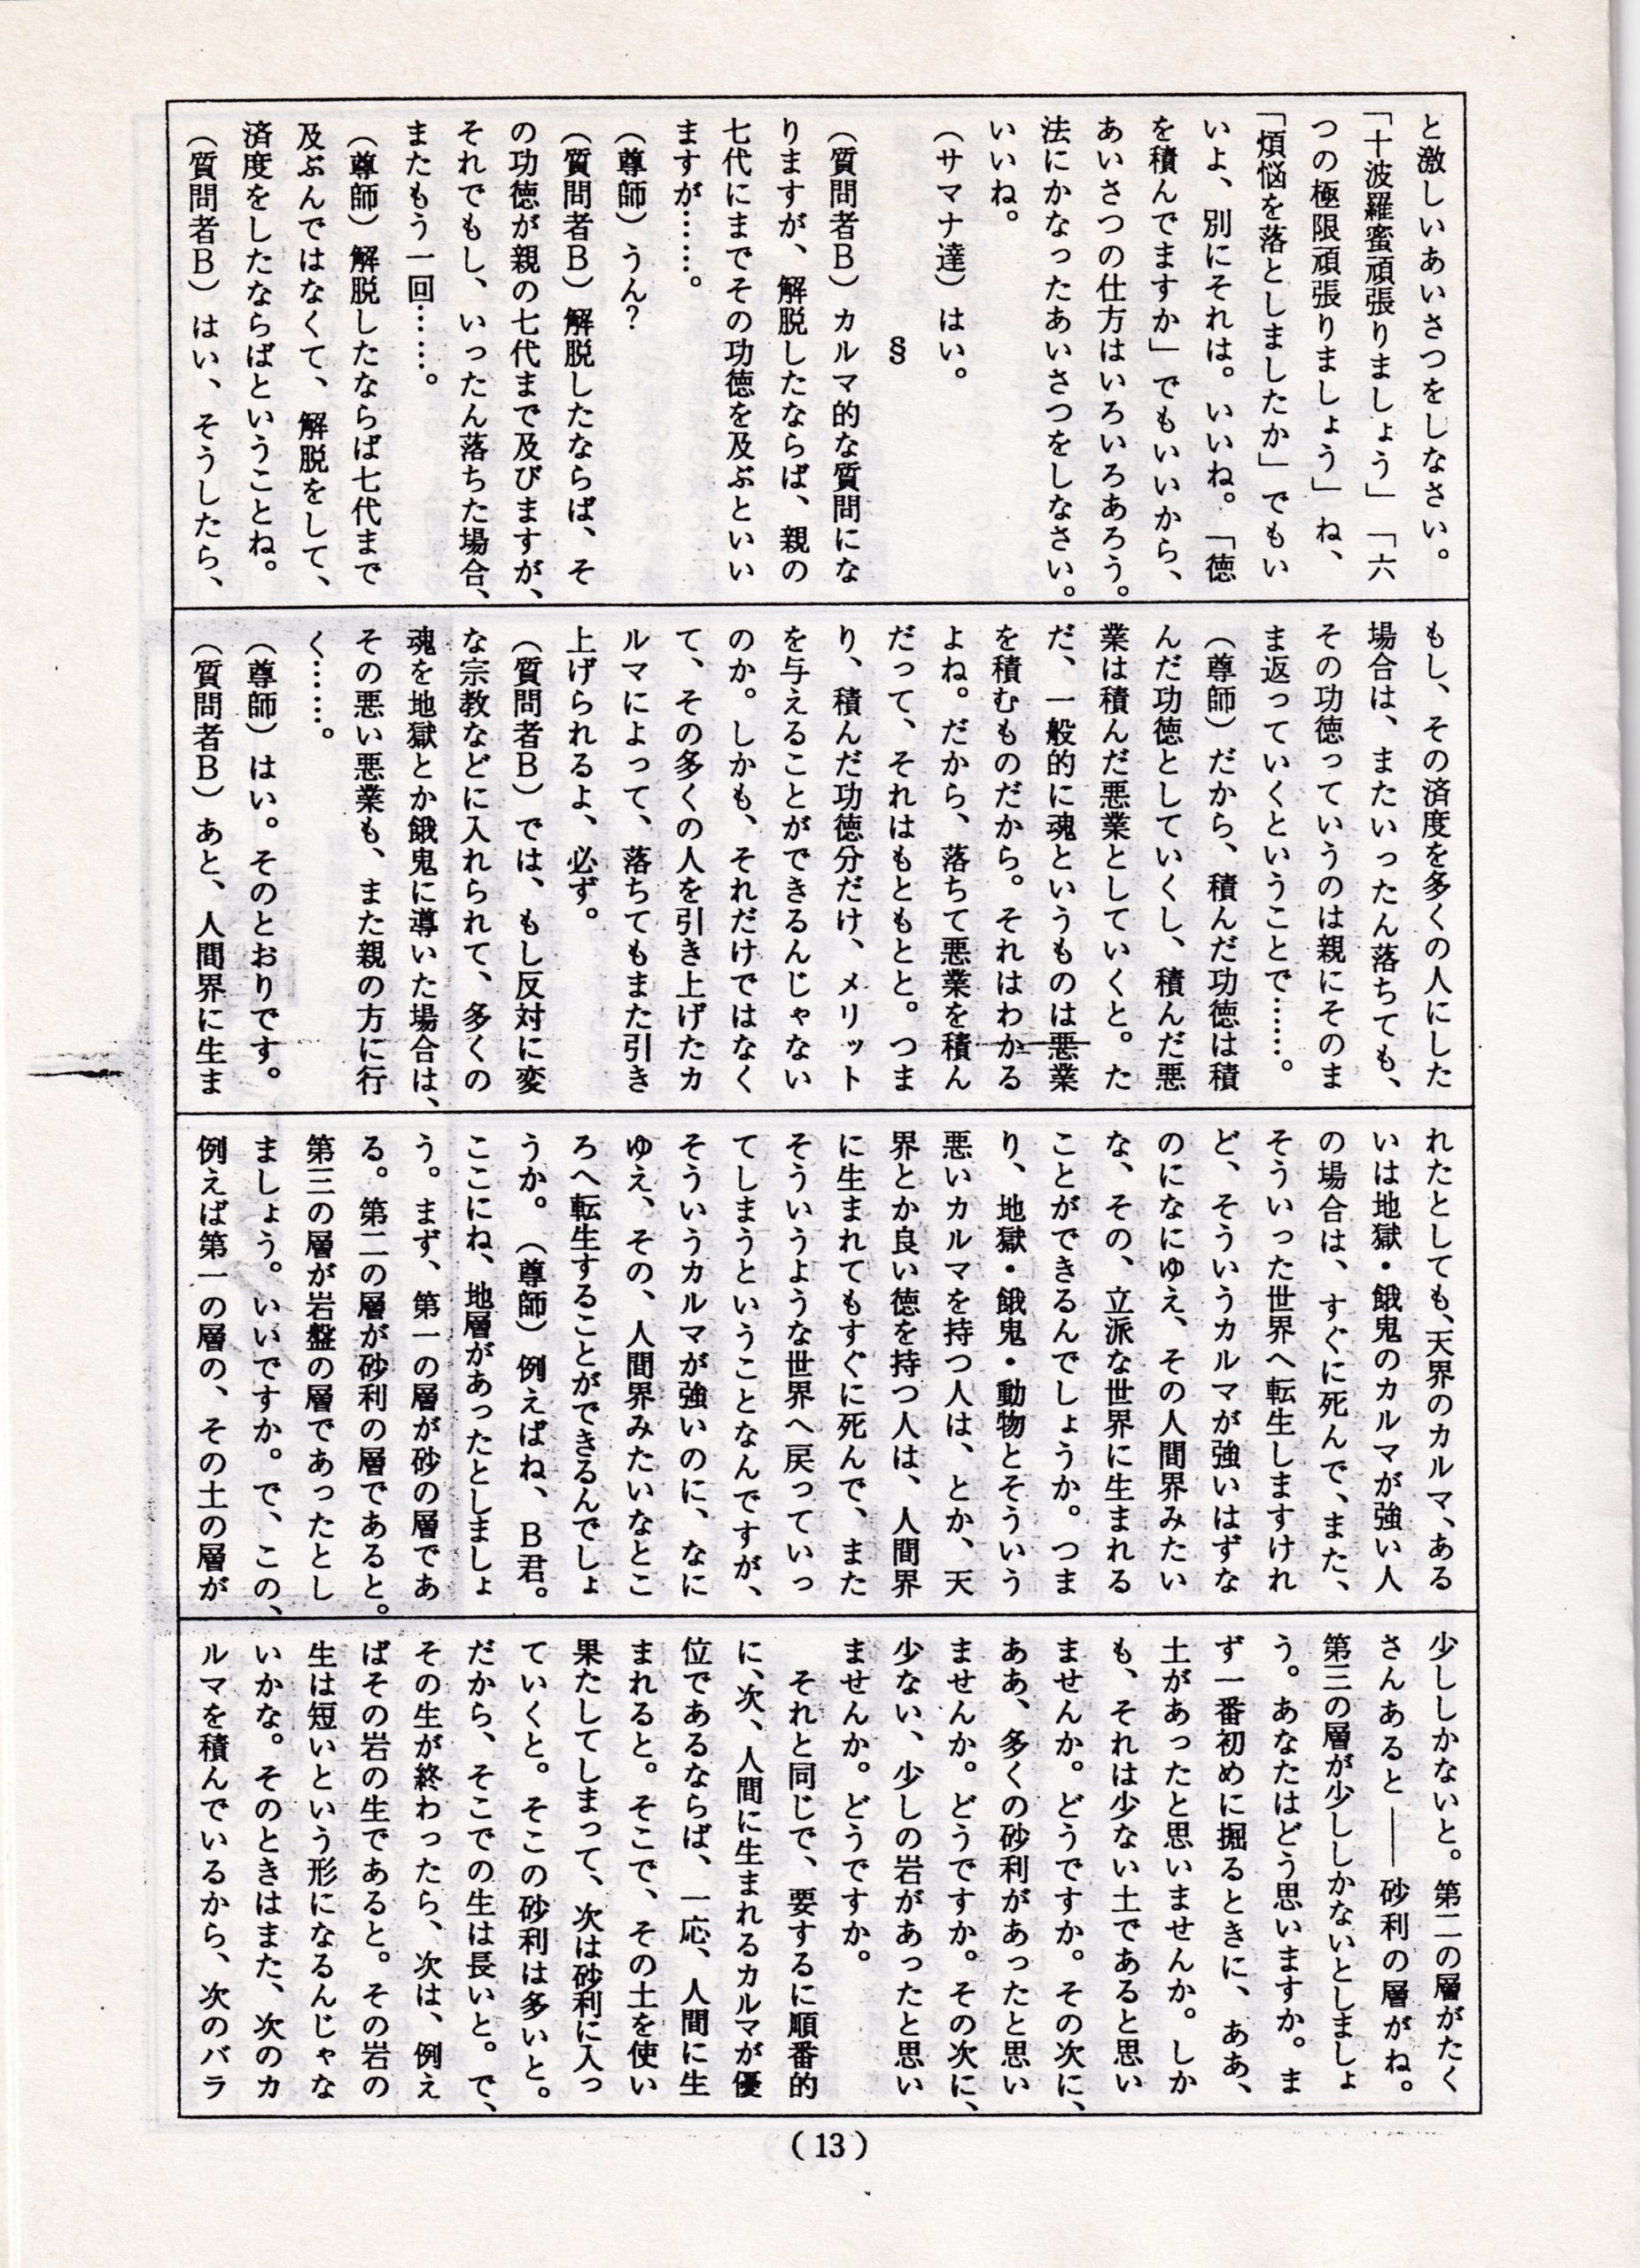 と激しいあいさつをしなさい。
「十波羅蜜頑張りましょう」「六
つの極限頑張りましょう」ね、
「煩悩を落としましたか」でもい
いよ、別にそれは。いいね。「徳
を積んでますか」でもいいから、
あいさつの仕方はいろいろあろう。
法にかなったあいさつをしなさい。
いいね。
（サマナ達）はい。
§
（質問者Ｂ）カルマ的な質問にな
りますが、解脱したならば、親の
七代にまでその功徳を及ぶといい
ますが……。
（尊師）うん？
（質問者Ｂ）解脱したならば、そ
の功徳が親の七代まで及びますが、
それでもし、いったん落ちた場合、
またもう一回……。
（尊師）解脱したならば七代まで
及ぶんではなくて、解脱をして、
済度をしたならばということね。
（質問者Ｂ）はい、そうしたら、
もし、その済度を多くの人にした
場合は、またいったん落ちても、
その功徳っていうのは親にそのま
ま返っていくということで……。
（尊師）だから、積んだ功徳は積
んだ功徳としていくし、積んだ悪
業は積んだ悪業としていくと。た
だ、一般的に魂というものは悪業
を積むものだから。それはわかる
よね。だから、落ちて悪業を積ん
だって、それはもともとと。つま
り、積んだ功徳分だけ、メリット
を与えることができるんじゃない
のか。しかも、それだけではなく
て、その多くの人を引き上げたカ
ルマによって、落ちてもまた引き
上げられるよ、必ず。
（質問者Ｂ）では、もし反対に変
な宗教などに入れられて、多くの
魂を地獄とか餓鬼に導いた場合は、
その悪い悪業も、また親の方に行
く……。
（尊師）はい。そのとおりです。
（質問者Ｂ）あと、人間界に生ま
れたとしても、天界のカルマ、ある
いは地獄・餓鬼のカルマが強い人
の場合は、すぐに死んで、また、
そういった世界へ転生しますけれ
ど、そういうカルマが強いはずな
のになにゆえ、その人間界みたい
な、その、立派な世界に生まれる
ことができるんでしょうか。つま
り、地獄・餓鬼・動物とそういう
悪いカルマを持つ人は、とか、天
界とか良い徳を持つ人は、人間界
に生まれてもすぐに死んで、また
そういうような世界へ戻っていっ
てしまうということなんですが、
そういうカルマが強いのに、なに
ゆえ、その、人間界みたいなとこ
ろへ転生することができるんでしょ
うか。（尊師）例えばね、Ｂ君。
ここにね、地層があったとしましょ
う。まず、第一の層が砂の層であ
る。第二の層が砂利の層であると。
第三の層が岩盤の層であったとし
ましょう。いいですか。で、この、
例えば第一の層の、その土の層が
少ししかないと。第二の層がたく
さんあると――砂利の層がね。
第三の層が少ししかないとしましょ
う。あなたはどう思いますか。ま
ず一番初めに掘るときに、ああ、
土があったと思いませんか。しか
も、それは少ない土であると思い
ませんか。どうですか。その次に、
ああ、多くの砂利があったと思い
ませんか。どうですか。その次に、
少ない、少しの岩があったと思い
ませんか。どうですか。
それと同じで、要するに順番的
に、次、人間に生まれるカルマが優
位であるならば、一応、人間に生
まれると。そこで、その土を使い
果たしてしまって、次は砂利に入っ
ていくと。そこの砂利は多いと。
だから、そこでの生は長いと。で、
その生が終わったら、次は、例え
ばその岩の生であると。その岩の
生は短いという形になるんじゃな
いかな。そのときはまた、次のカ
ルマを積んでいるから、次のバラ
（13）